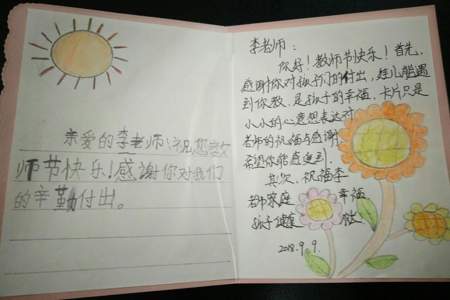 亲爱的李老师:祝您教
师节快乐!感谢你对我们
的辛勤付出。
李老师:
你好!教师节快乐!首先,
感谢你对孩子们的付出,
到你教,是孩子的幸福,卡片只是
小小的心意想表达对
老师的祝福与感谢
希望你能感受到.
其次,祝福李
老师家庭幸福
孩子健康
2018.9.9.